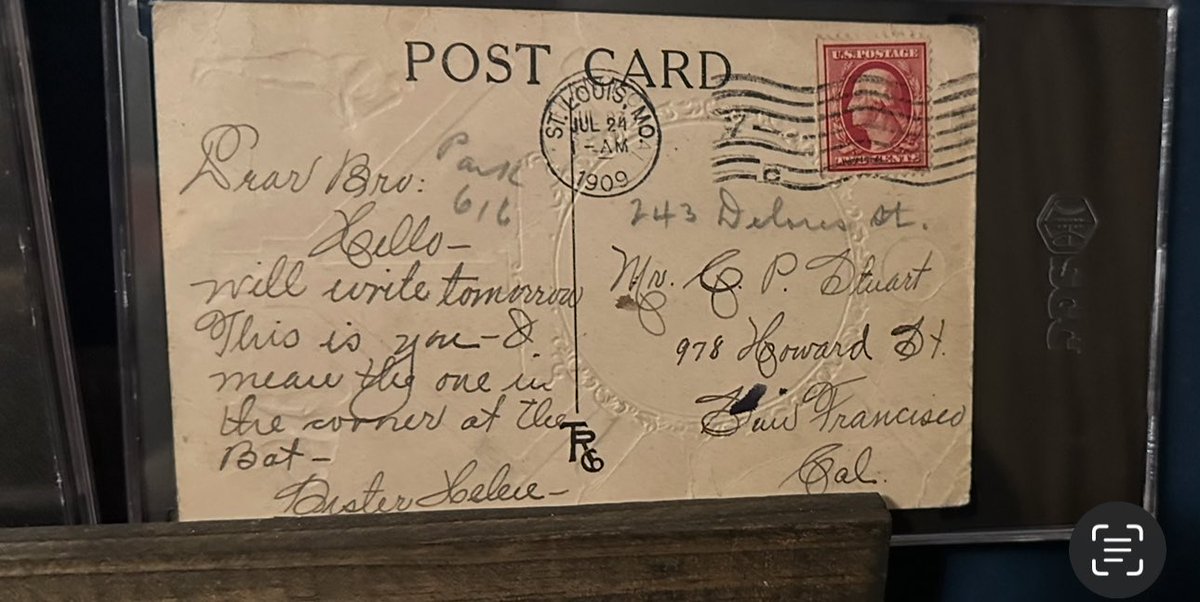 POST CARD
U.S. POSTAGE
ST. LOUIS, MO.
JUL 24
-AM
1909
Park
616
Dear Bro:
Hello-
will write tomorrow
This is you - I
mean the one in
the corner at the
Bat-
Sister Helen-
TRG
243 Delores St.
Mr. C. P. Stuart
978 Howard St.
San Francisco
Cal.
SGC